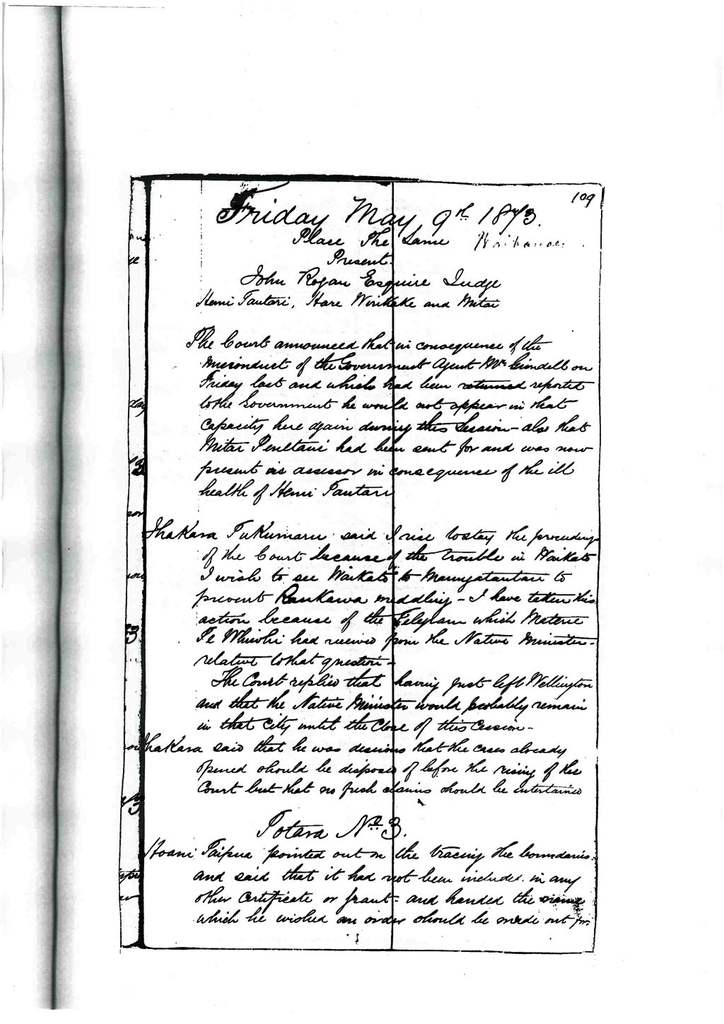 109
Friday May 9th 1873.
Place The Same Waikanae
Present
John Rogan Esquire Judge
Hemi Tautari, Hare Wirikake and Mitai
The Court announced that in consequence of the
misconduct of the Government Agent Mr Grindell on
Friday last and which had been returned reported
to the Government he would not appear in that
capacity here again during this Session - also that
Mitai Penetaui had been sent for and was now
present as assessor in consequence of the ill
health of Hemi Tautari
Ihakara Tukumaru said I rise to stay the proceeding
of the Court because of the trouble in Waikato
I wish to see Waikato to Maungatautari to
prevent Raukawa meddling - I have taken this
action because of the Telegram which Matene
Te Whiwhi had received from the Native Minister -
relative to that question -
The Court replied that having just left Wellington
and that the Native Minister would probably remain
in that City until the Close of this Cession -
Ihakara said that he was desirous that the cases already
opened should be disposed of before the rising of the
Court but that no fresh claims should be entertained
Potava No 3.
Hoani Taipua pointed out on the tracing the boundaries,
and said that it had not been included in any
other Certificate or grant - and handed the name
which he wished an order should be made out for